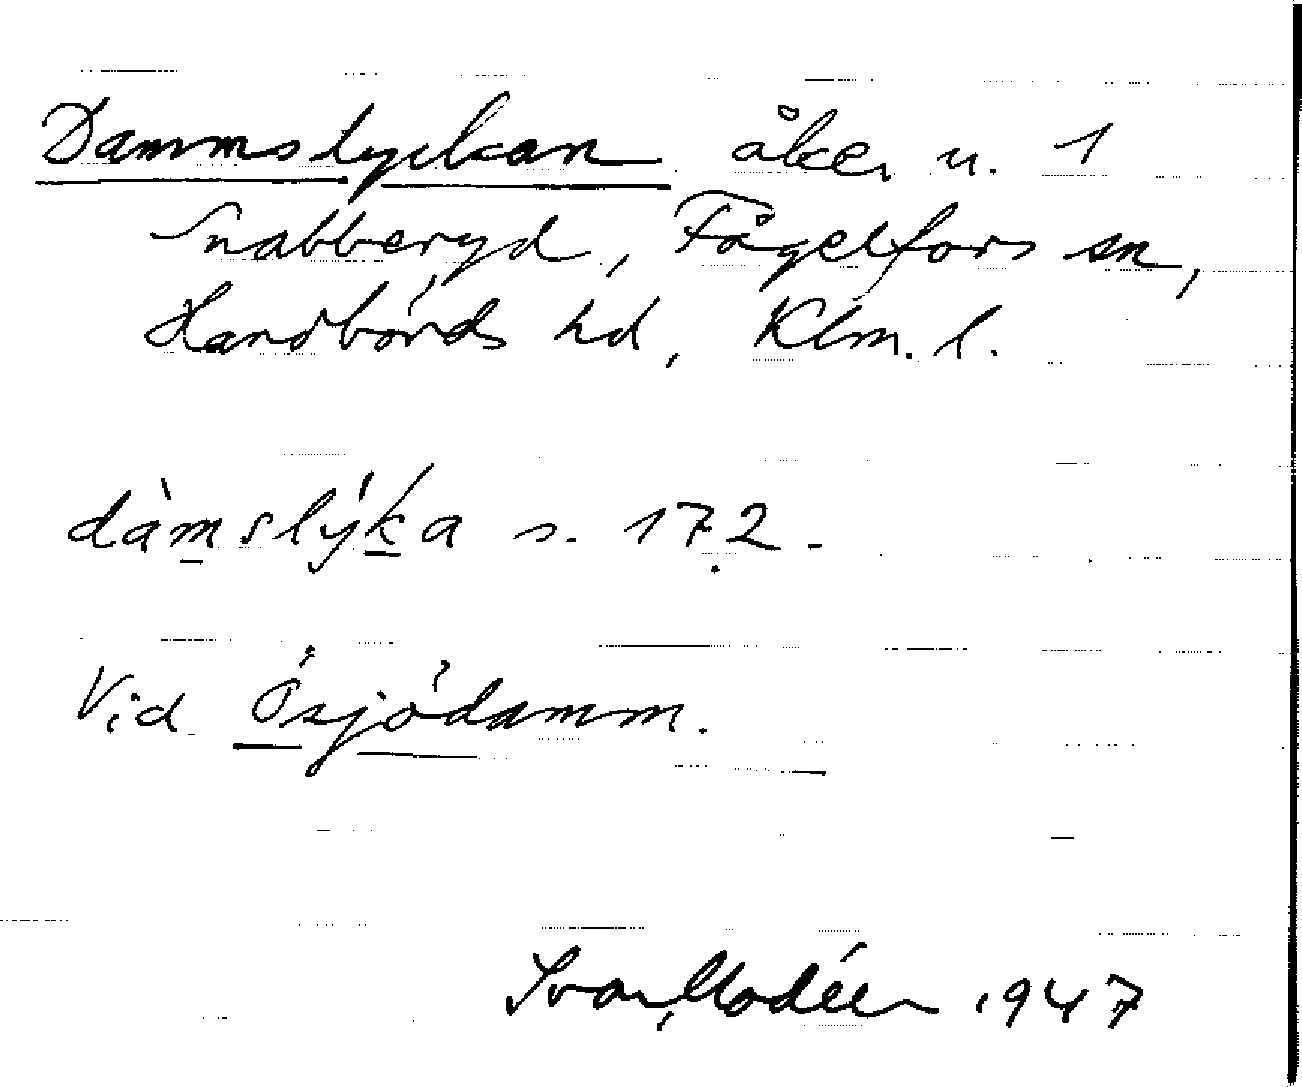 Dammslyckan åker u. 1
Snabberyd, Fågelfors sn,
Handbörds hd, Klm. l.
dàmslýka s. 172.
Vid Ösjödamm.
Ivar Modéer 1947